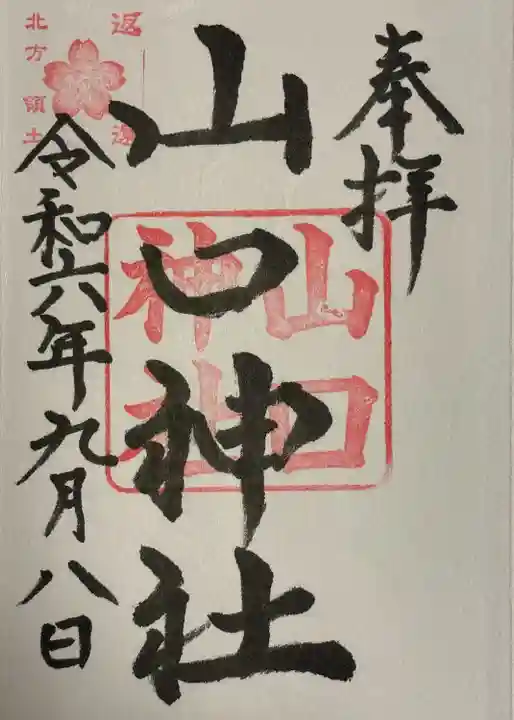 奉拝
山口神社
山口
神社
令和六年九月八日
北方領土
返還